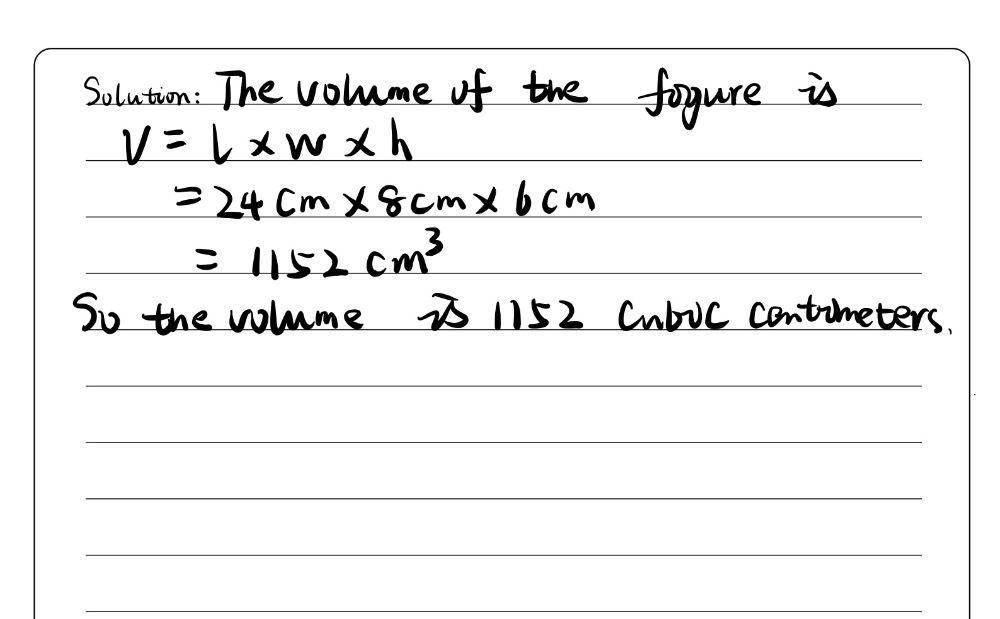 Solution: The volume of the figure is
V = l × w × h
= 24 cm × 8 cm × 6 cm
= 1152 cm³
So the volume is 1152 cubic centimeters.